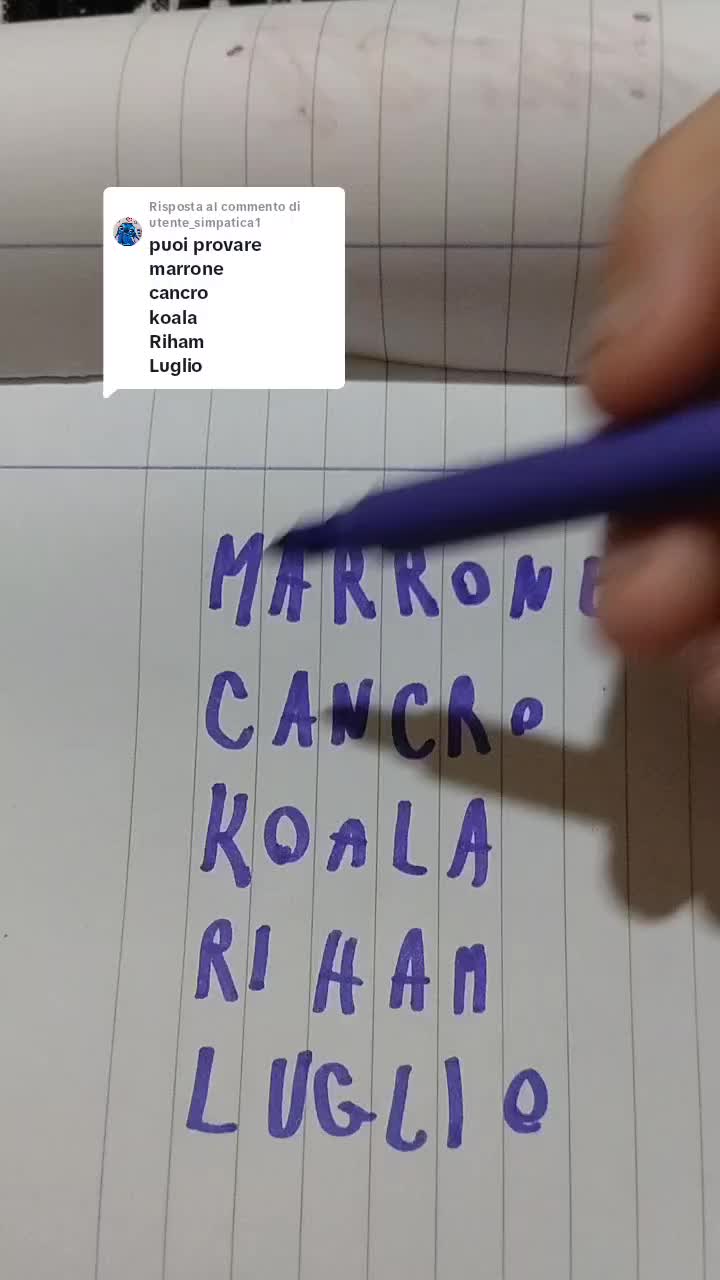 Risposta al commento di
utente_simpatica1
puoi provare
marrone
cancro
koala
Riham
Luglio
MARRONE
CANCRO
KOALA
RIHAM
LUGLIO